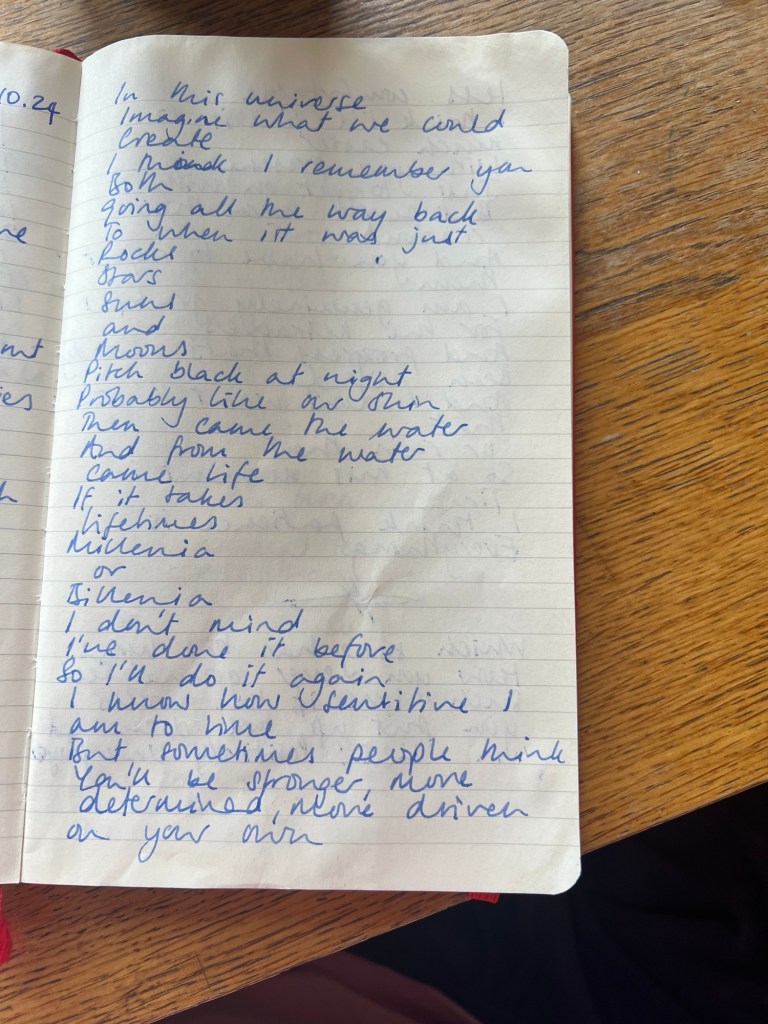 10.24
In this universe
Imagine what we could
create
I think I remember you
Both
going all the way back
To when it was just
Rocks
Stars
Suns
and
Moons
Pitch black at night
Probably like our skin
Then came the water
And from the water
came life
If it takes
lifetimes
Millenia
or
Billenia
I don't mind
I've done it before
So I'll do it again
I know how sentitive I
am to time
But, sometimes people think
You'll be stronger, more
determined, more driven
on your own